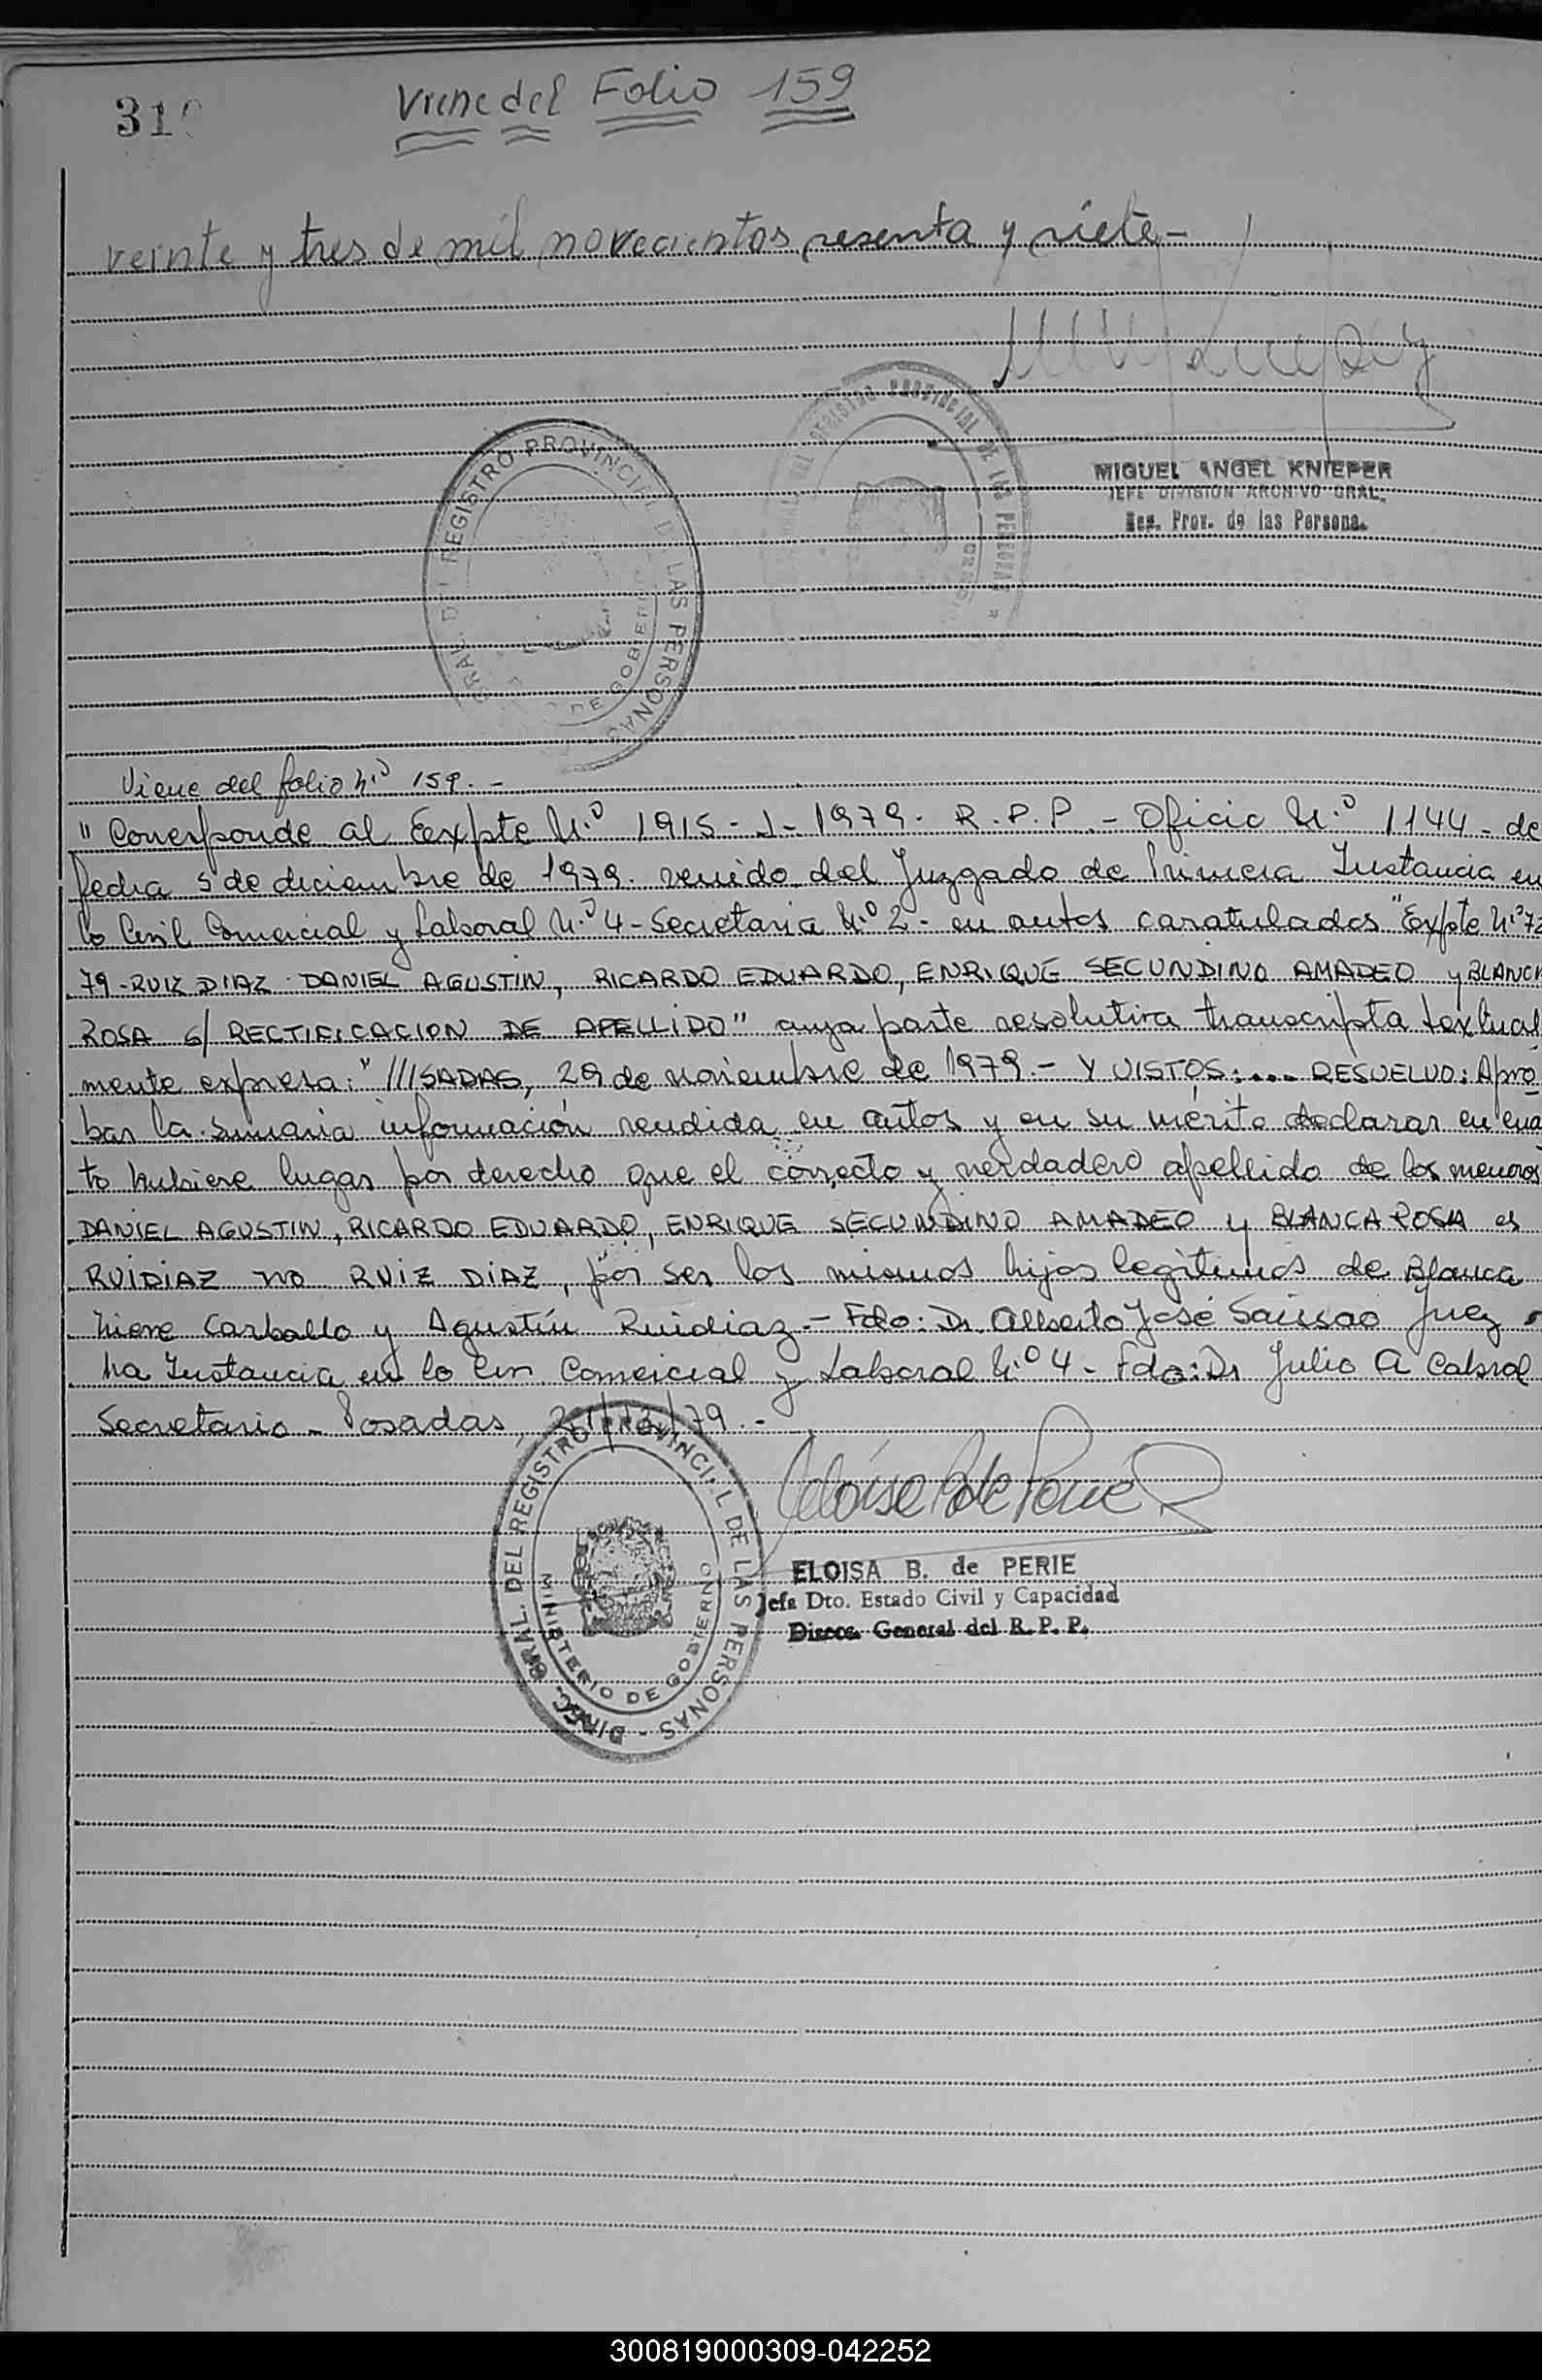 Viene del Folio 159
31
veinte y tres de mil novecientos sesenta y siete.-
REGISTRO PROVINCIAL DE LAS PERSONAS
DE GOBIERNO
REGISTRO PROVINCIAL DE LAS PERSONAS
MIGUEL ANGEL KNIEPER
JEFE DIVISION ARCHIVO GRAL.
Reg. Prov. de las Persona.
Viene del folio N.º 159.-
"Corresponde al Eexpte N.º 1915-J-1979. R.P.P.- Oficio N.º 1144- de
fecha 5 de diciembre de 1979. venido del Juzgado de Primera Instancia en
lo Civil Comercial y Laboral N.º 4-Secretaria N.º 2- en autos caratulados "Expte N.º 72
79-RUIZ DIAZ DANIEL AGUSTIN, RICARDO EDUARDO, ENRIQUE SECUNDINO AMADEO y BLANCA
ROSA S/ RECTIFICACION DE APELLIDO" cuya parte resolutiva transcripta textual
mente expresa: "///SADAS, 29 de noviembre de 1979.- Y VISTOS:.... RESUELVO: Apro
bar la sumaria información rendida en autos y en su mérito declarar en cua
to hubiere lugar por derecho que el correcto y verdadero apellido de los menores
DANIEL AGUSTIN, RICARDO EDUARDO, ENRIQUE SECUNDINO AMADEO y BLANCA ROSA es
RUIDIAZ no RUIZ DIAZ, por ser los mismos hijos legitimos de Blanca
Nieve Carballo y Agustín Ruidiaz.- Fdo: Dr. Alberto José Juez
Instancia en lo Comercial y Laboral N.º 4- Fdo: Dr Julio A Cabral
Secretario - Posadas, 21/12/79.-
DIREC. GRAL. DEL REGISTRO PROVINCIAL DE LAS PERSONAS -
MINISTERIO DE GOBIERNO
ELOISA B. de PERIE
Jefa Dto. Estado Civil y Capacidad
Direcc. General del R. P. P.
300819000309-042252